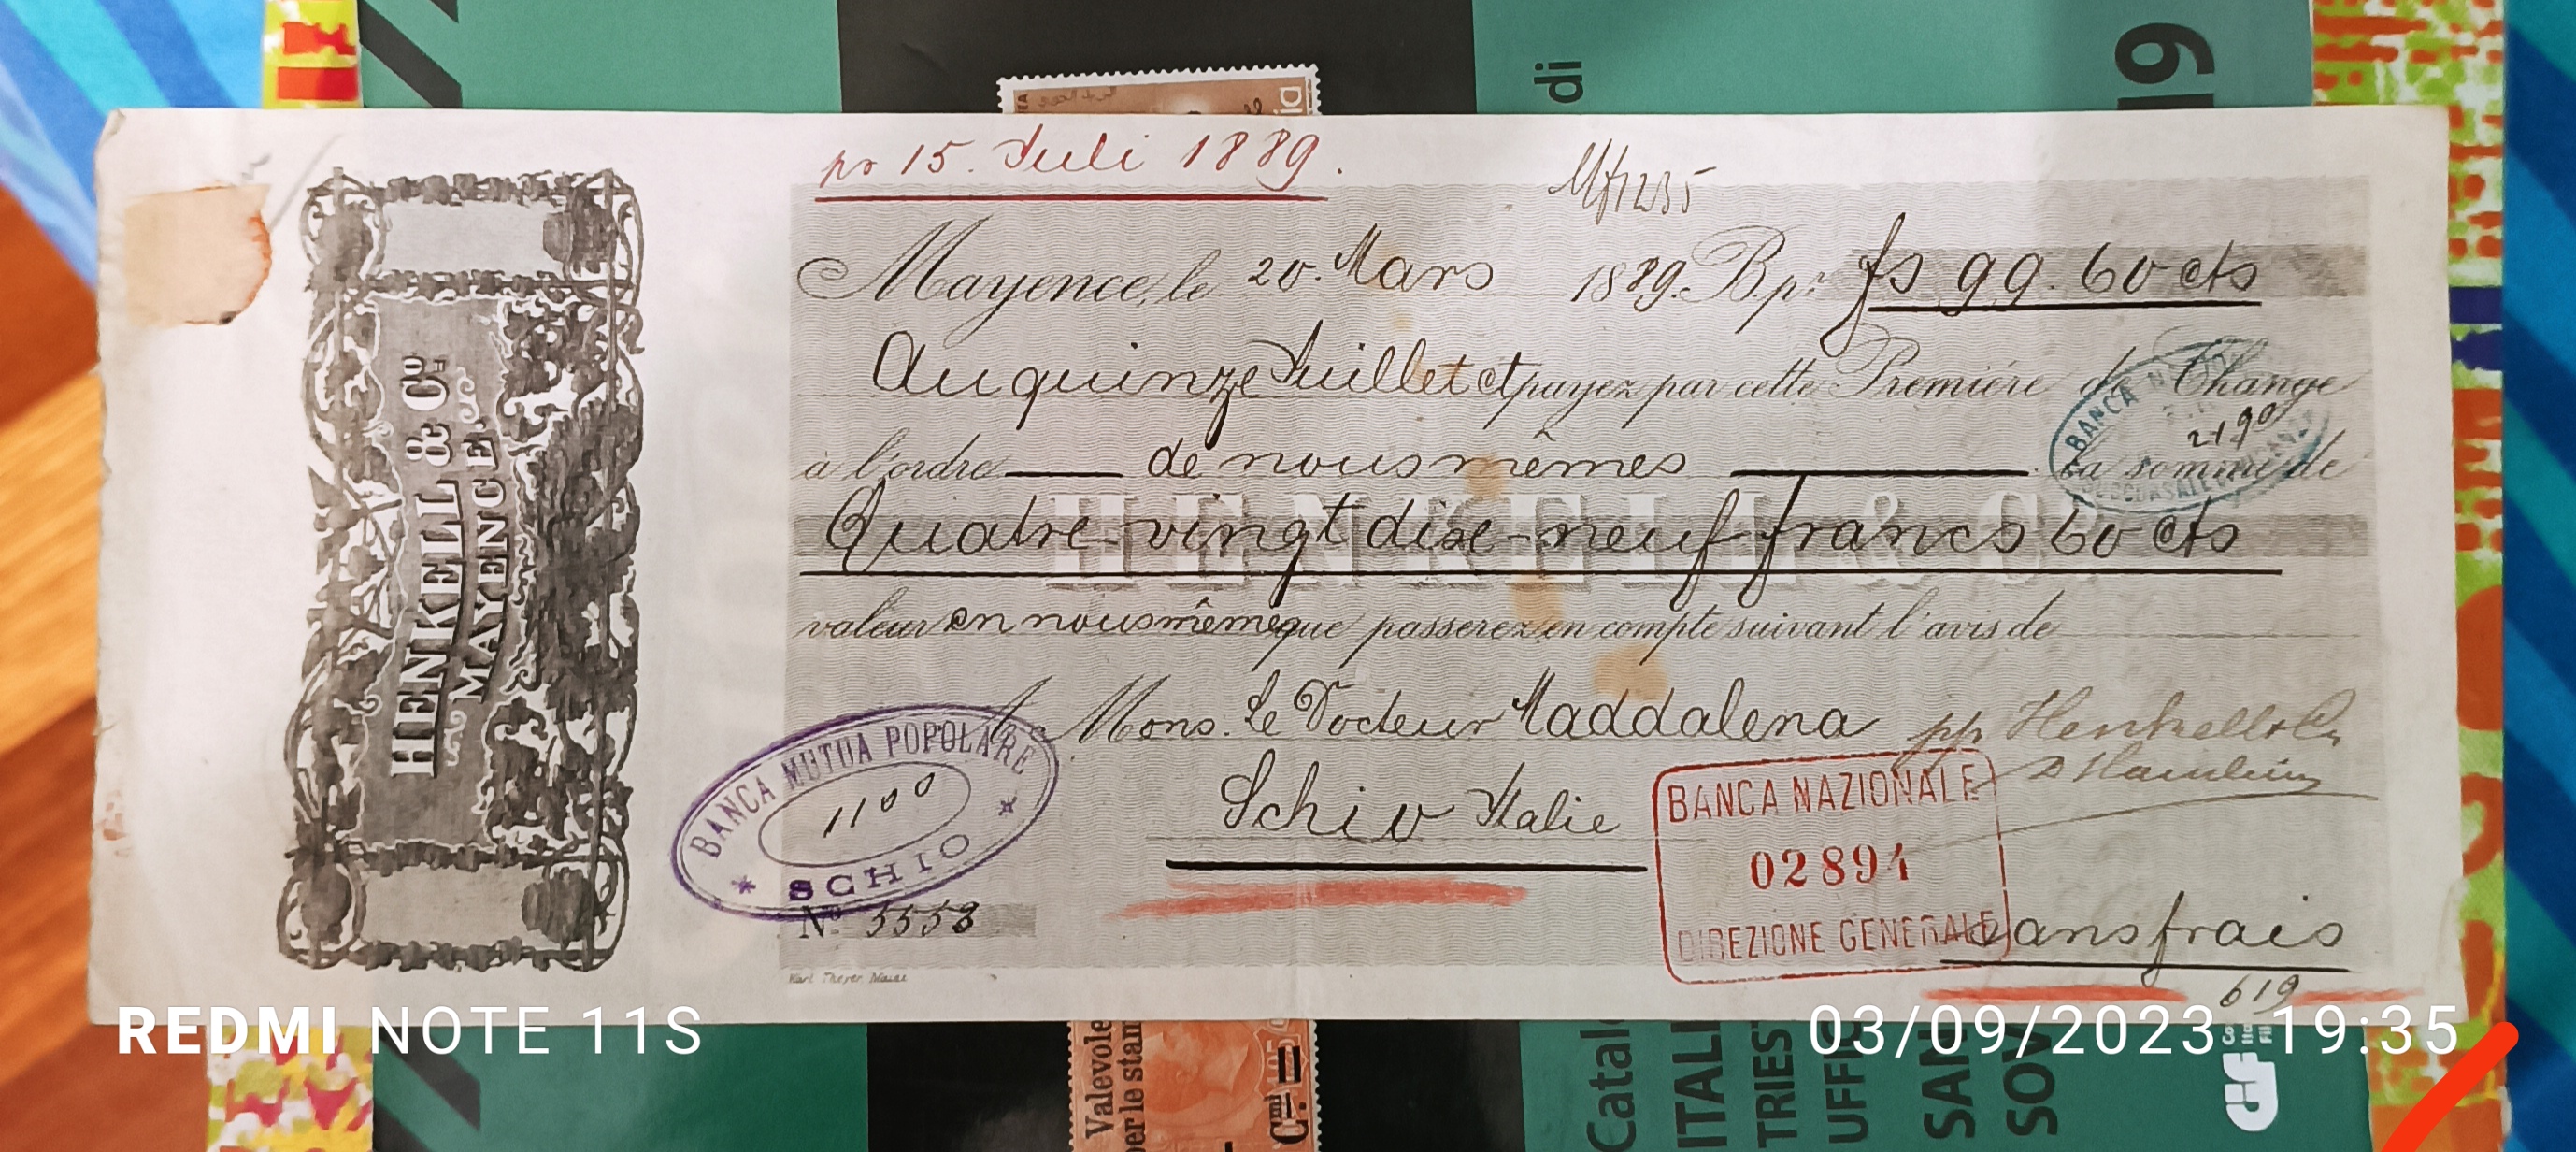 di
19
pr 15. Juli 1889.
Mayence, le 20. Mars 1889. B. pr fs 99. 60 cts
Au quinze Juillet ct payez par cette Première de Change
à l'ordre de nous mêmes la somme de
HENKELL & Co
Quatre-vingt dix-neuf francs 60 cts
valeur en nous mêmes que passerez en compte suivant l'avis de
A Mons. Le Docteur Maddalena pp Henkell & Co
Schio Italie
sans frais
619
No 5553
Karl Theyer, Mainz
HENKELL & Co.
MAYENCE.
BANCA MUTUA POPOLARE
1100
* SCHIO *
BANCA NAZIONALE
02894
DIREZIONE GENERALE
BANCA
2190
REDMI NOTE 11S
03/09/2023 19:35
Valevole
per le stam
Cmi 105
C.=
ITALI
TRIEST
UFFIC
SAN
SOV